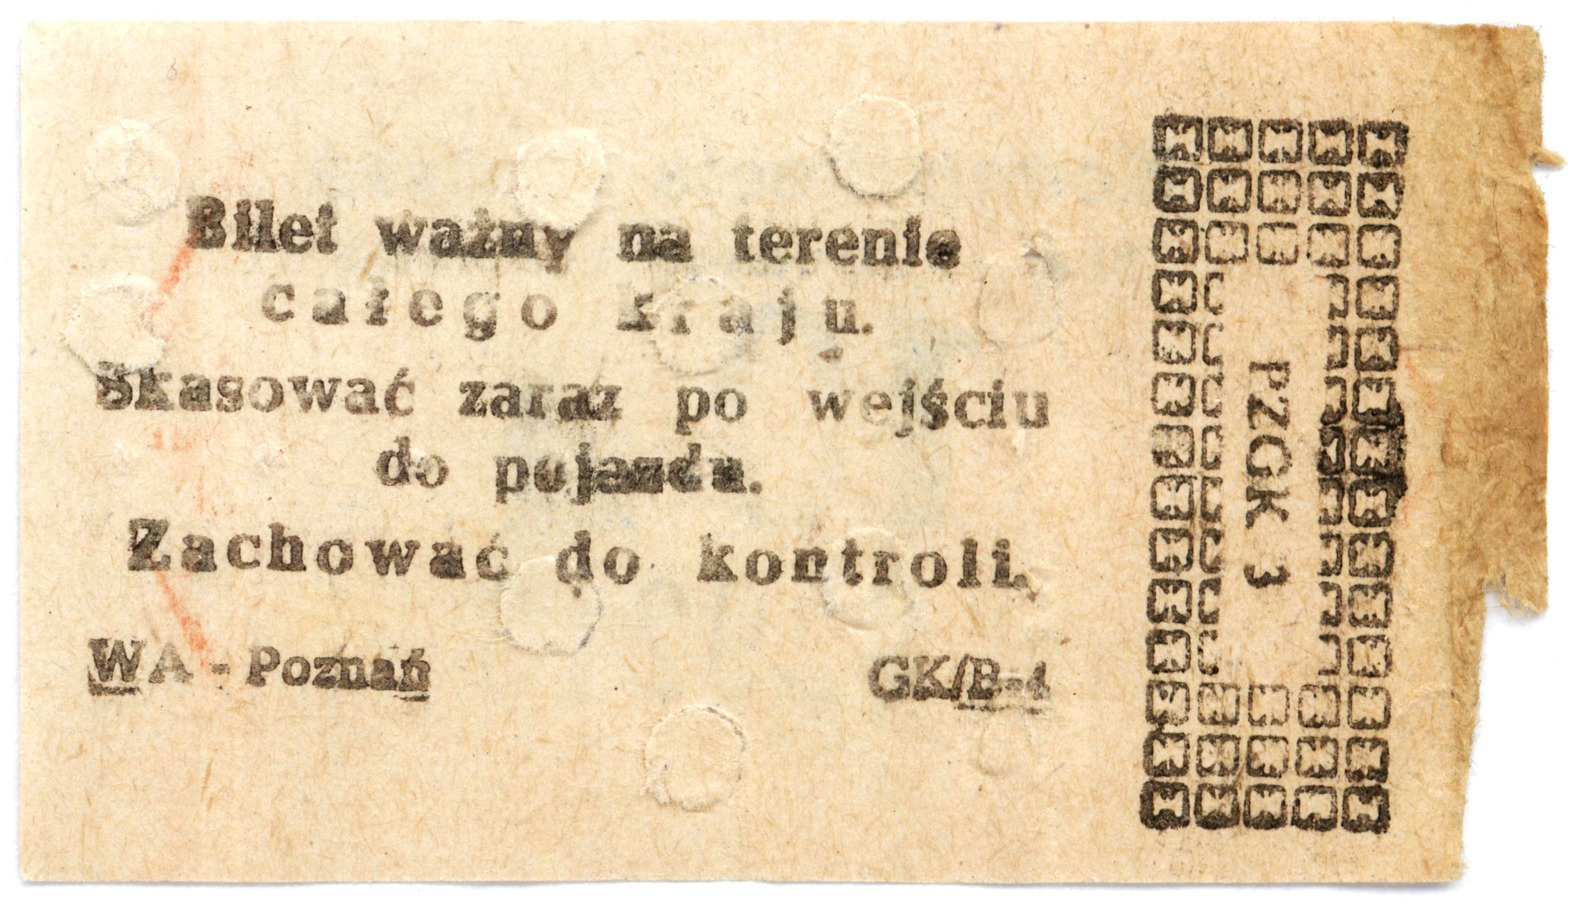 Bilet ważny na terenie
całego kraju.
Skasować zaraz po wejściu
do pojazdu.
Zachować do kontroli.
WA - Poznań GK/B-4
PZGK 3